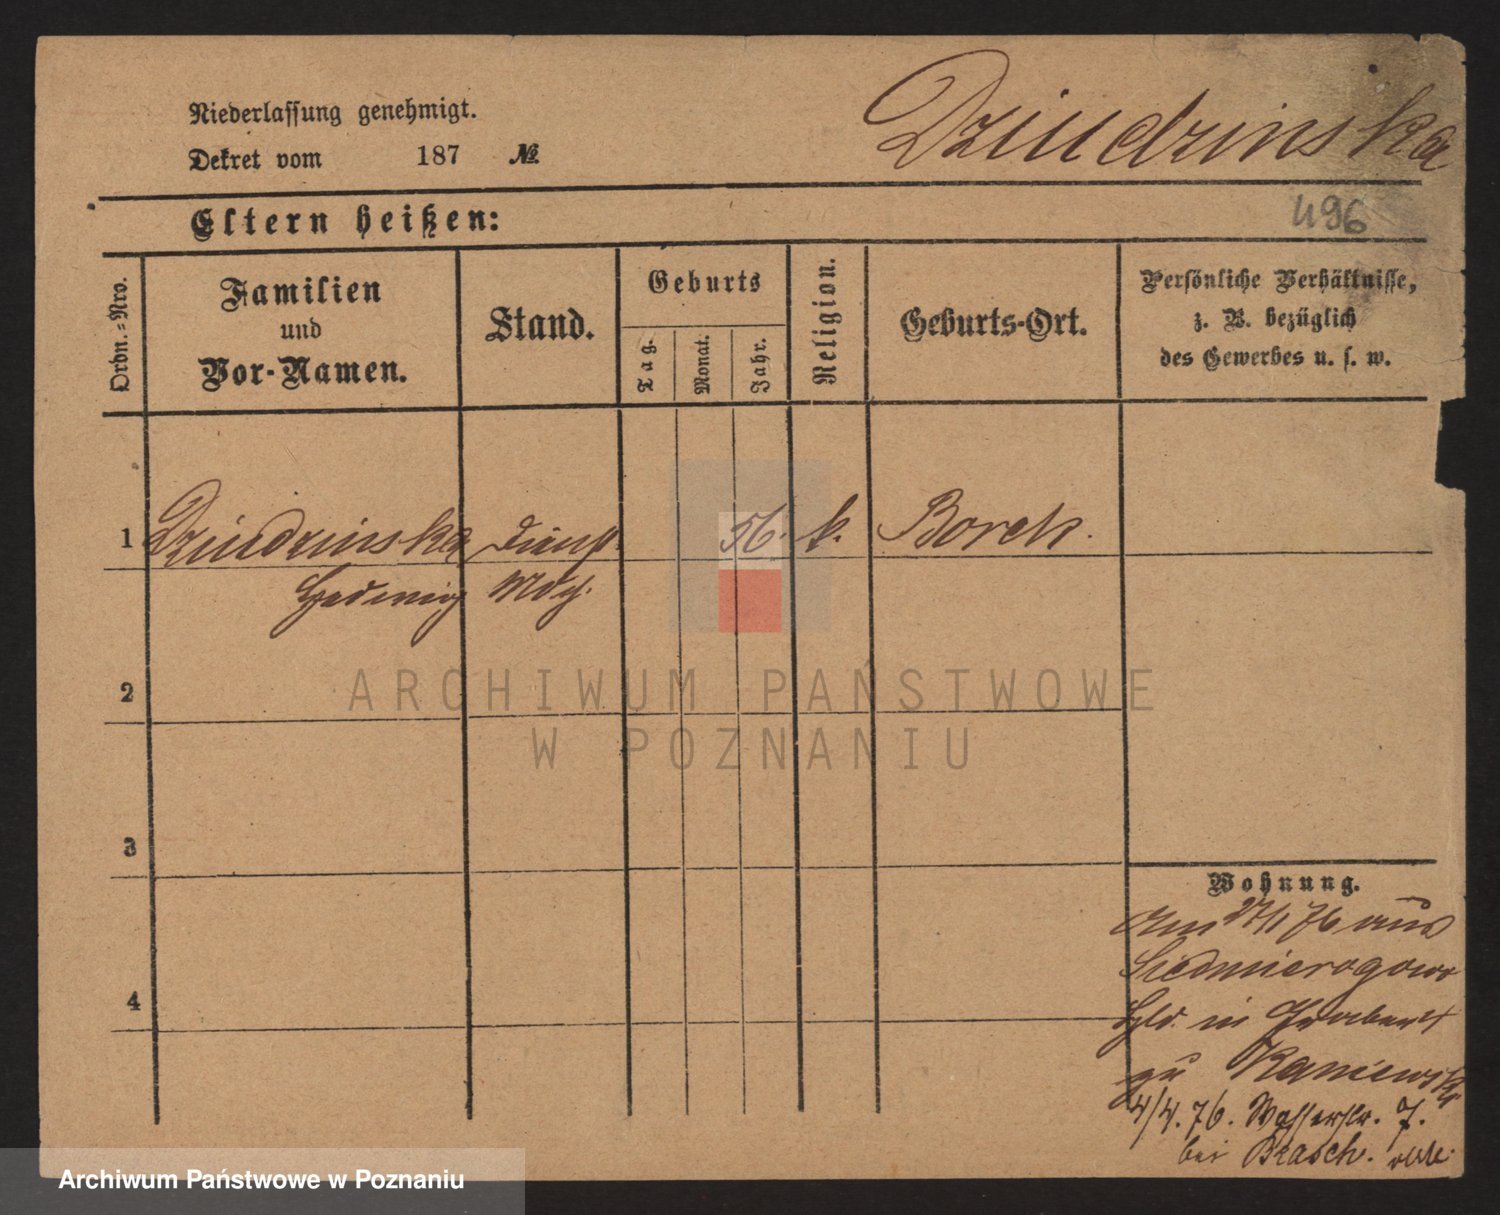 Niederlassung genehmigt.
Dekret vom 187 №
Dziudzinska
496
Eltern heißen:
Ordn.-Nro.
Familien
und
Vor-Namen.
Stand.
Geburts
Tag.
Monat.
Jahr.
Religion.
Geburts-Ort.
Persönliche Verhältnisse,
z. B. bezüglich
des Gewerbes u. s. w.
1 Dziudzinska Dienst 56. k. Borek.
Hedwig Mdch.
2
3
4
Wohnung.
Am 27/1 76 aus
Siedmierogowo
in
zu Kaniewski
4/4. 76. Wasserstr. 7.
bei Brasch.
ARCHIWUM PAŃSTWOWE
W POZNANIU
Archiwum Państwowe w Poznaniu